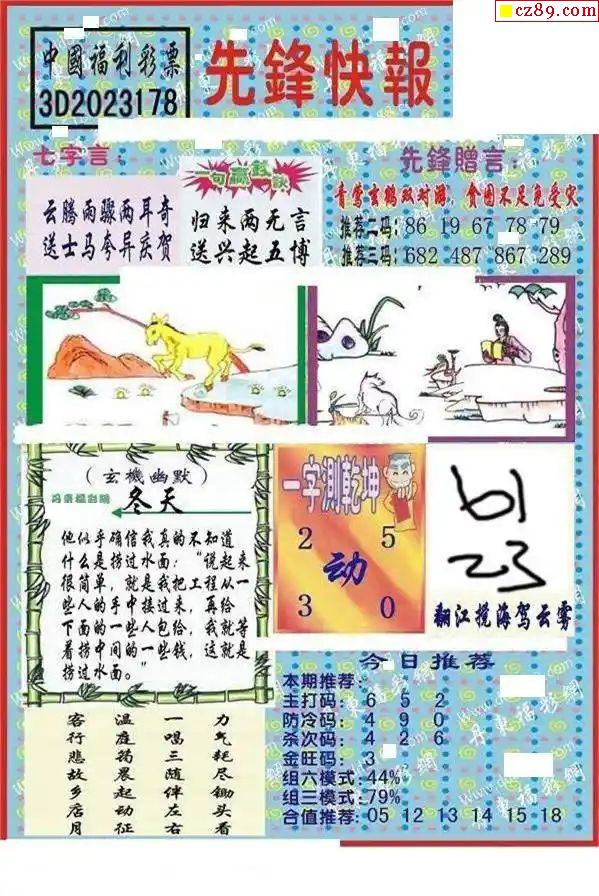 cz89.com
中國福利彩票
3D2023178
先鋒快報
七字言：
云腾雨骤两耳奇
送士马夸异庆贺
一句赢钱诀
归来两无言
送兴起五博
先鋒贈言：
青莺玄鹤双对游，食困不足免受灾
推荐二码：86 19 67 78 79
推荐三码：682 487 867 289
（玄機幽默）
冬天
他似乎确信我真的不知道
什么是捞过水面："说起来
很简单，就是我把工程从一
些人的手中接过来，再给
下面的一些人包给，我就等
着捞中间的一些钱，这就是
捞过水面。"
一字測乾坤
2 5
动
3 0
61
23
翻江搅海驾云雾
客行悲故乡店月
温庭筠晨起动征
一唱三随伴左右
力气耗尽锄头看
今日推荐
本期推荐：
主打码：6 5 2
防冷码：4 9 0
杀次码：4 2 6
金旺码：3
组六模式：44%
组三模式：79%
合值推荐：05 12 13 14 15 18